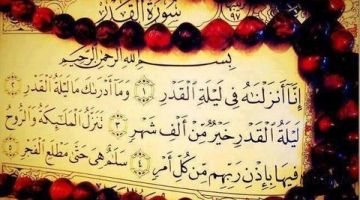 سُورَةُ الْقَدْرِ
٩٧
بِسْمِ اللَّهِ الرَّحْمَٰنِ الرَّحِيمِ
إِنَّا أَنزَلْنَاهُ فِي لَيْلَةِ الْقَدْرِ ١ وَمَا أَدْرَاكَ مَا لَيْلَةُ الْقَدْرِ ٢
لَيْلَةُ الْقَدْرِ خَيْرٌ مِّنْ أَلْفِ شَهْرٍ ٣ تَنَزَّلُ الْمَلَائِكَةُ وَالرُّوحُ
فِيهَا بِإِذْنِ رَبِّهِم مِّن كُلِّ أَمْرٍ ٤ سَلَامٌ هِيَ حَتَّىٰ مَطْلَعِ الْفَجْرِ ٥